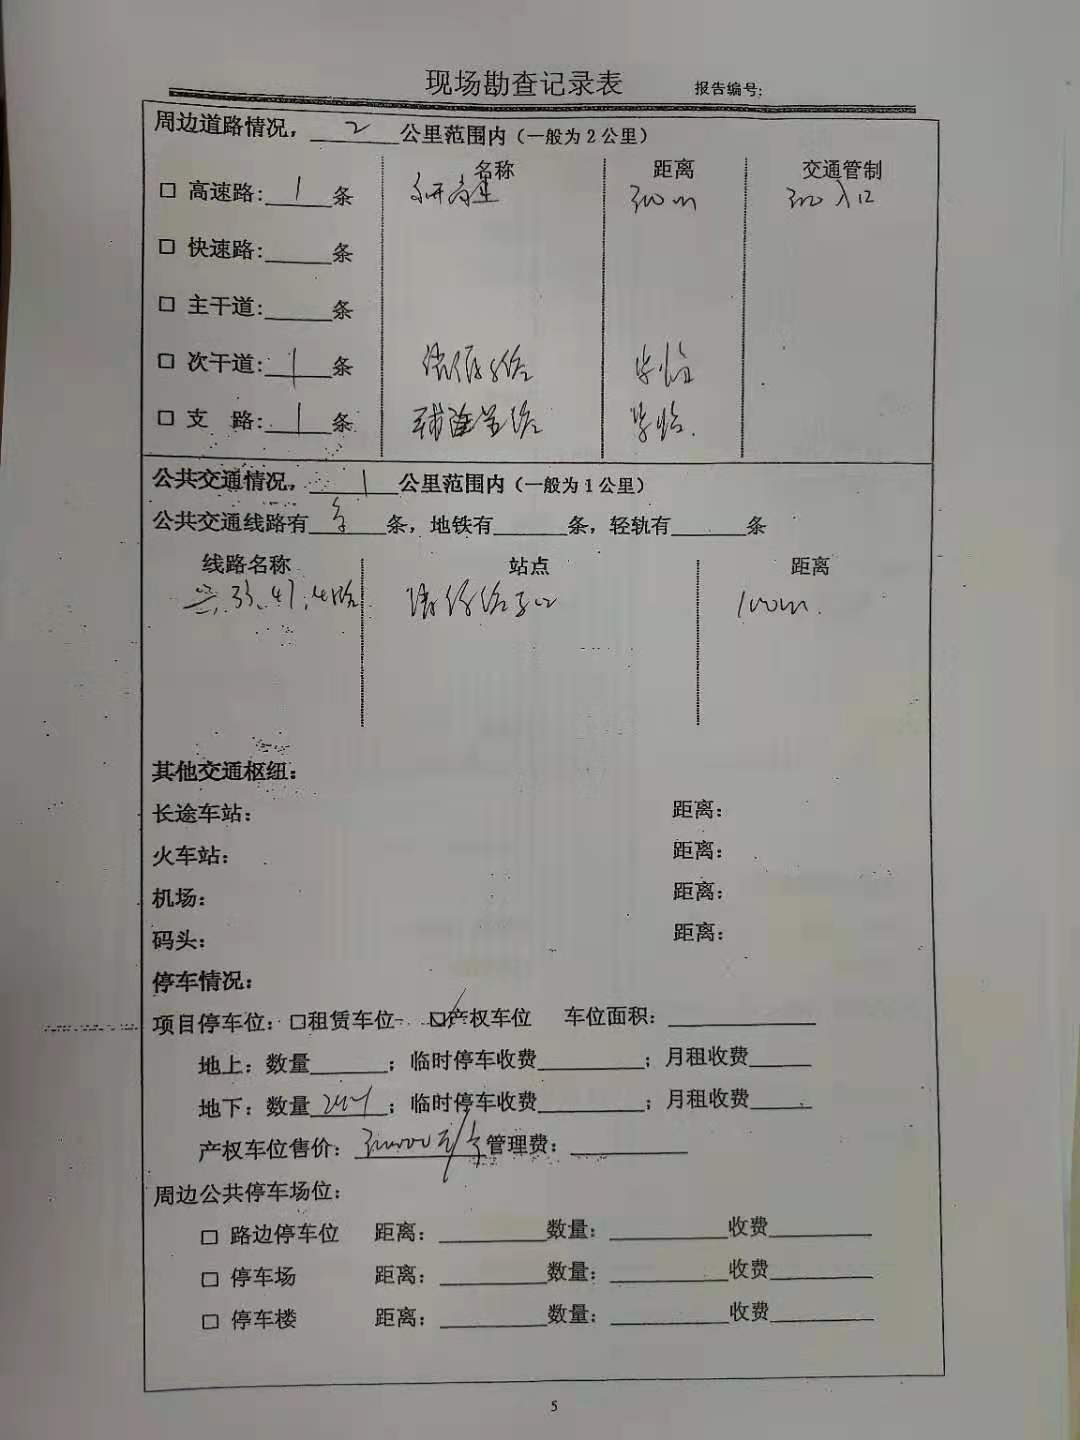 现场勘查记录表 报告编号:
周边道路情况，2公里范围内（一般为2公里）
名称 距离 交通管制
□ 高速路:1条 300m 入口
□ 快速路:____条
□ 主干道:____条
□ 次干道:1条
□ 支 路:1条
公共交通情况，1公里范围内（一般为1公里）
公共交通线路有____条，地铁有____条，轻轨有____条
线路名称 站点 距离
100m.
其他交通枢纽：
长途车站： 距离：
火车站： 距离：
机场： 距离：
码头： 距离：
停车情况：
项目停车位：□租赁车位 ☑产权车位 车位面积：____
地上：数量____；临时停车收费____；月租收费____
地下：数量____；临时停车收费____；月租收费____
产权车位售价：300000元/个管理费：____
周边公共停车场位：
□ 路边停车位 距离：____数量：____收费____
□ 停车场 距离：____数量：____收费____
□ 停车楼 距离：____数量：____收费____
5